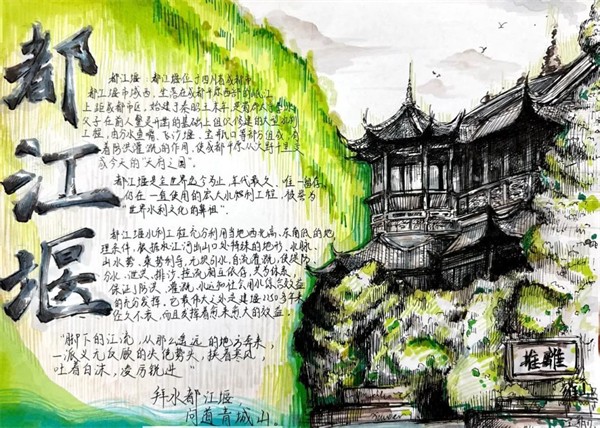 都江堰
都江堰:都江堰位于四川省成都市
都江堰市城西,坐落在成都平原西部的岷江
上距成都市区,始建于秦昭王末年,是蜀郡太守李冰
父子在前人鳖灵开凿的基础上组织修建的大型水利
工程,由分水鱼嘴、飞沙堰、宝瓶口等部分组成,有
着防洪灌溉的作用,使成都平原从
今天的"天府之国"。
都江堰是全世界迄今为止,年代最久、唯一留存、
仍在一直使用的宏大水利工程,被誉为
"世界水利文化的鼻祖"。
都江堰水利工程充分利用当地西北高、东南低的地
理条件,根据江河出山口处特殊的地形、水脉、
水势,乘势利导,无坝引水,自流灌溉,使堤防、
分水、泄洪、排沙、控流相互依存,共为体系,
保证了防洪、灌溉、水运和社会用水综合效益
的充分发挥,它最伟大之处是建堰2250多年来
经久不衰,而且发挥着愈来愈大的效益。
"脚下的江流,从那么遥远的地方奔来,
一派义无反顾的决绝势头,挟着寒风,
吐着白沫,凌厉锐进。"
拜水都江堰
问道青城山。